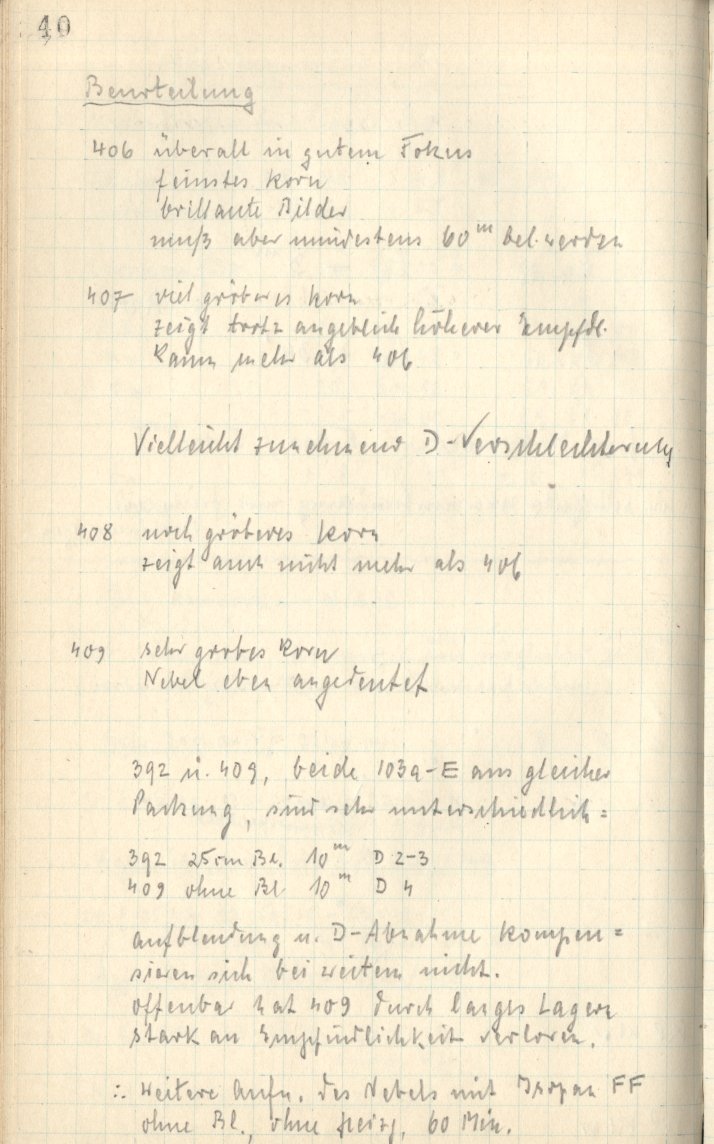 40
Beurteilung
406 überall in gutem Fokus
feinstes Korn
brillante Bilder
muß aber mindestens 60ᵐ bel. werden
407 viel gröberes Korn
zeigt trotz angeblich höherer Empfdl.
kaum mehr als 406
Vielleicht zunehmend D-Verschlechterung
408 noch gröberes Korn
zeigt auch nicht mehr als 406
409 sehr grobes Korn
Nebel eben angedeutet
392 u. 409, beide 103a-E aus gleicher
Packung, sind sehr unterschiedlich =
392 25cm Bl. 10ᵐ D 2-3
409 ohne Bl 10ᵐ D 4
Aufblendung u. D-Abnahme kompen=
sieren sich bei weitem nicht.
offenbar hat 409 durch langes Lagern
stark an Empfindlichkeit verloren.
∴ weitere Aufn. des Nebels mit Isopan FF
ohne Bl., ohne 60 Min.